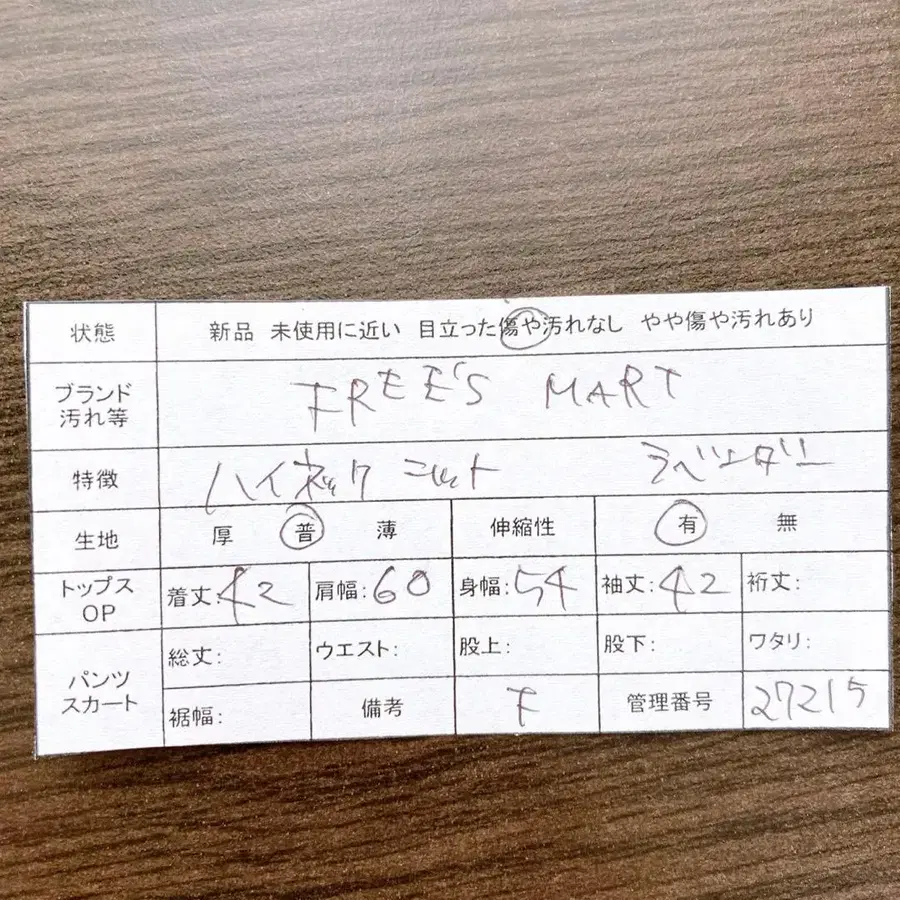 状態 新品 未使用に近い 目立った傷や汚れなし やや傷や汚れあり
ブランド
汚れ等 FREE'S MART
特徴 ハイネックニット ラベンダー
生地 厚 普 薄 伸縮性 有 無
トップス
OP 着丈:42 肩幅:60 身幅:54 袖丈:42 裄丈:
パンツ
スカート 総丈: ウエスト: 股上: 股下: ワタリ:
裾幅: 備考 F 管理番号 27215